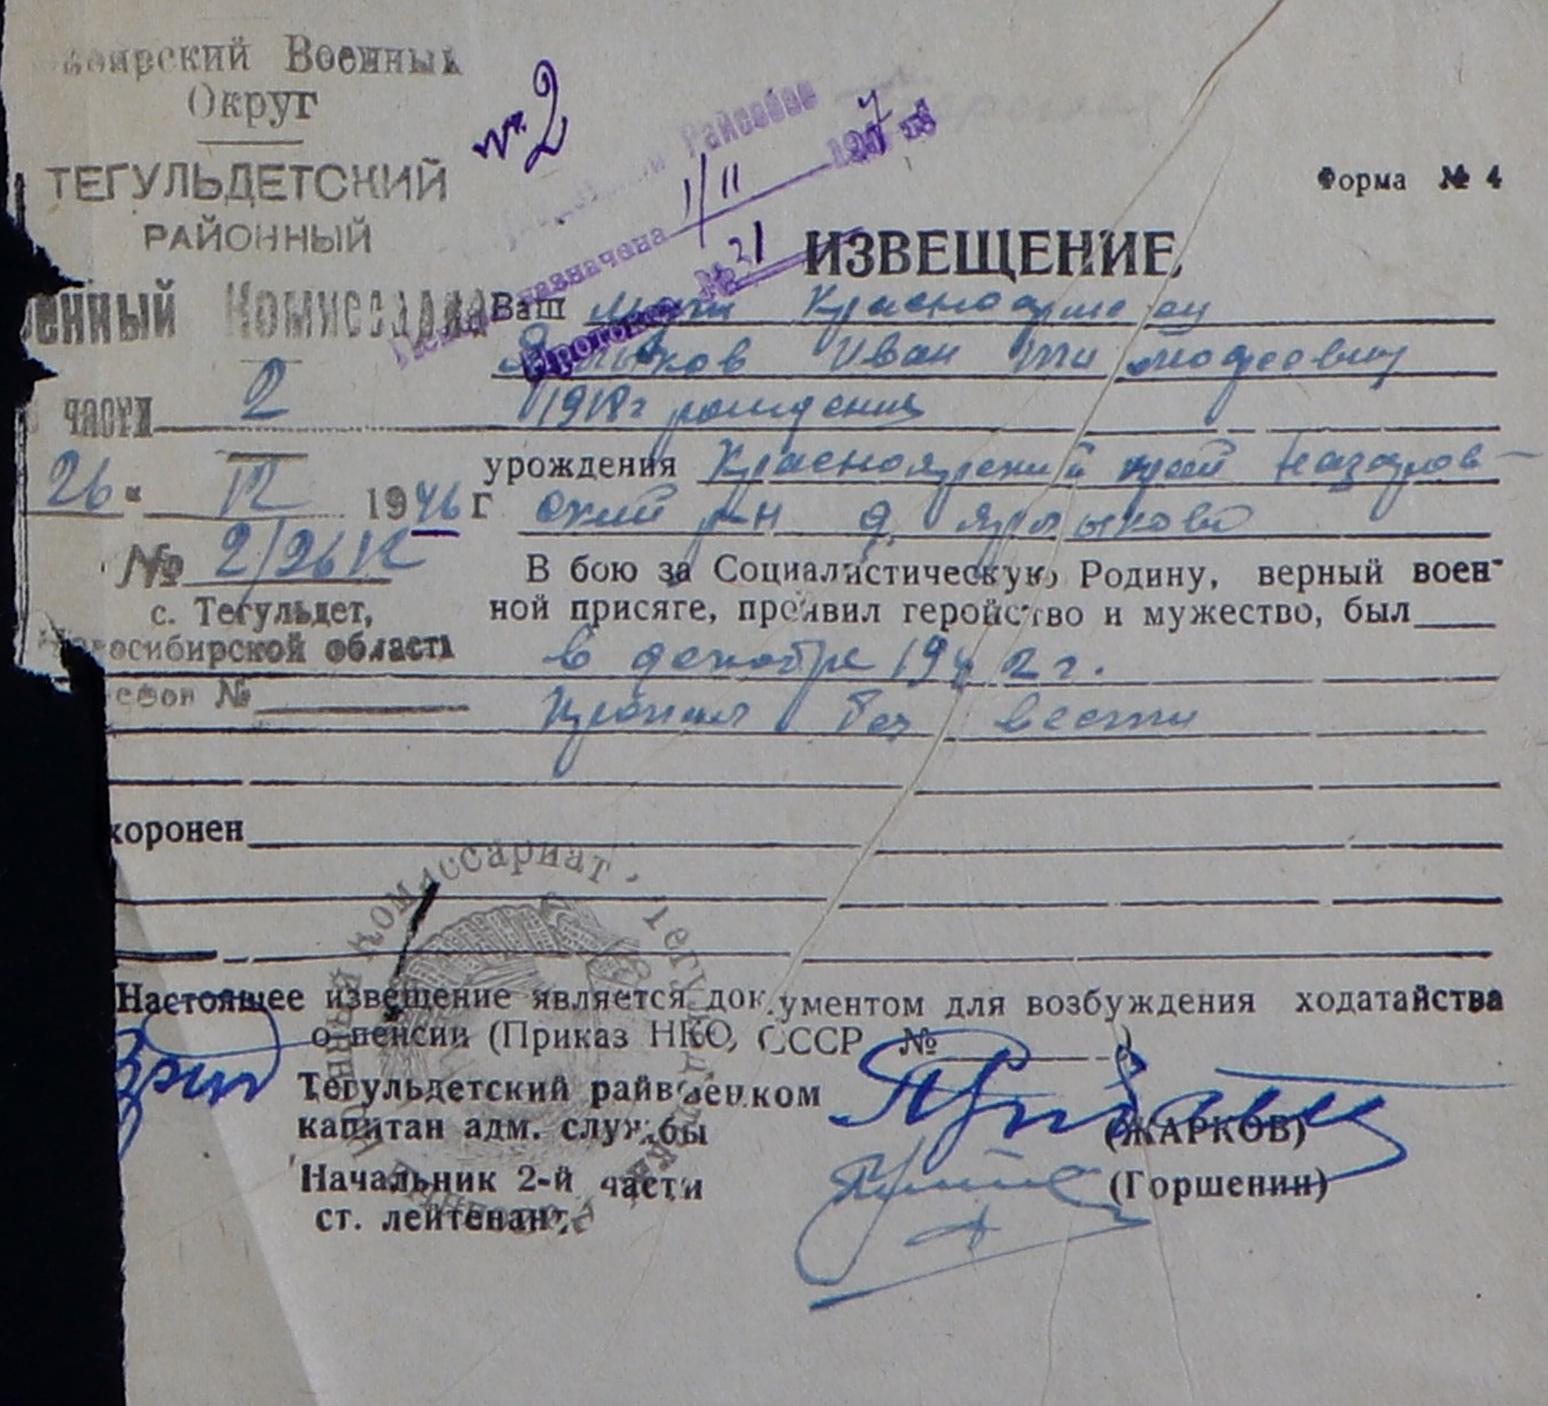 Военный
Округ
ТЕГУЛЬДЕТСКИЙ
РАЙОННЫЙ
части 2
26 " XII 1946 Г
№ 2/26 12
с. Тегульдет,
Новосибирской области
№
№ 2
Райсобес
назначена 1/II 1947
Протокол № 21
Форма № 4
ИЗВЕЩЕНИЕ
Ваш муж Красноармеец
Иван Тимофеевич
1918 г рождения
урождения Красноярский край Назаров-
ский р-н д.
В бою за Социалистическую Родину, верный воен-
ной присяге, проявил геройство и мужество, был
в декабре 1942 г.
пропал без вести
хоронен
Настоящее извещение является документом для возбуждения ходатайства
о пенсии (Приказ НКО, СССР № )
Тегульдетский райвоенком
капитан адм. службы (ЖАРКОВ)
Начальник 2-й части (Горшенин)
ст. лейтенант